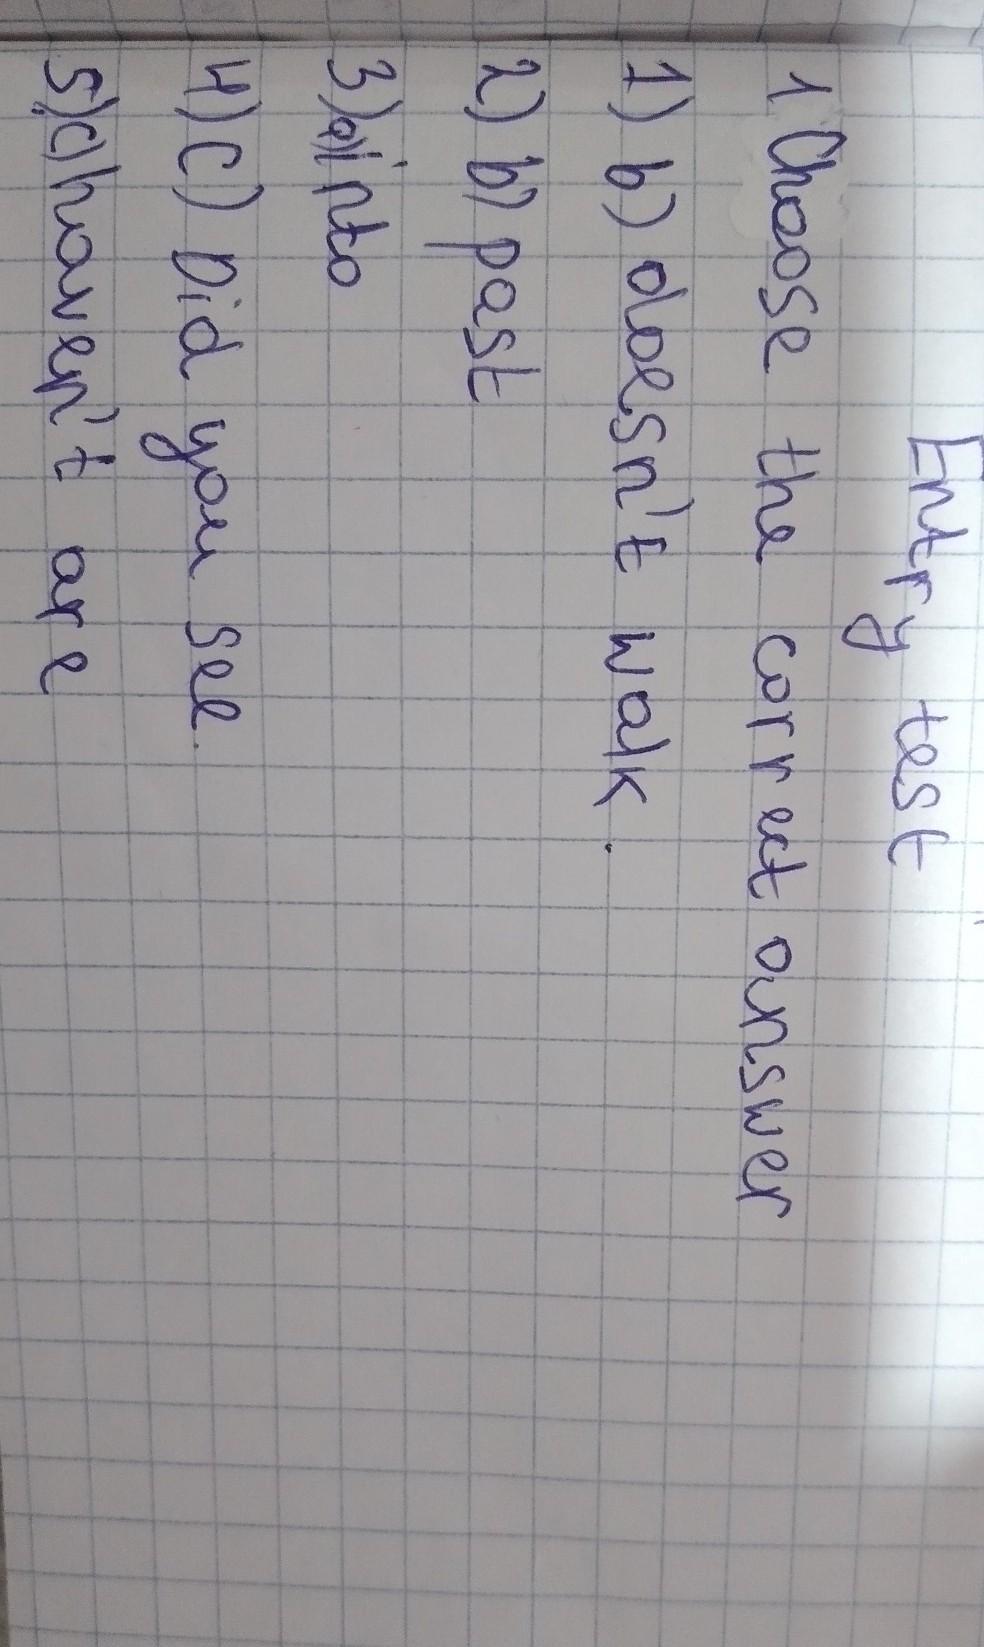 Entry test
1 Choose the correct answer
1) b) doesn't walk.
2) b) past
3) a) into
4) c) Did you see.
5) c) haven't are